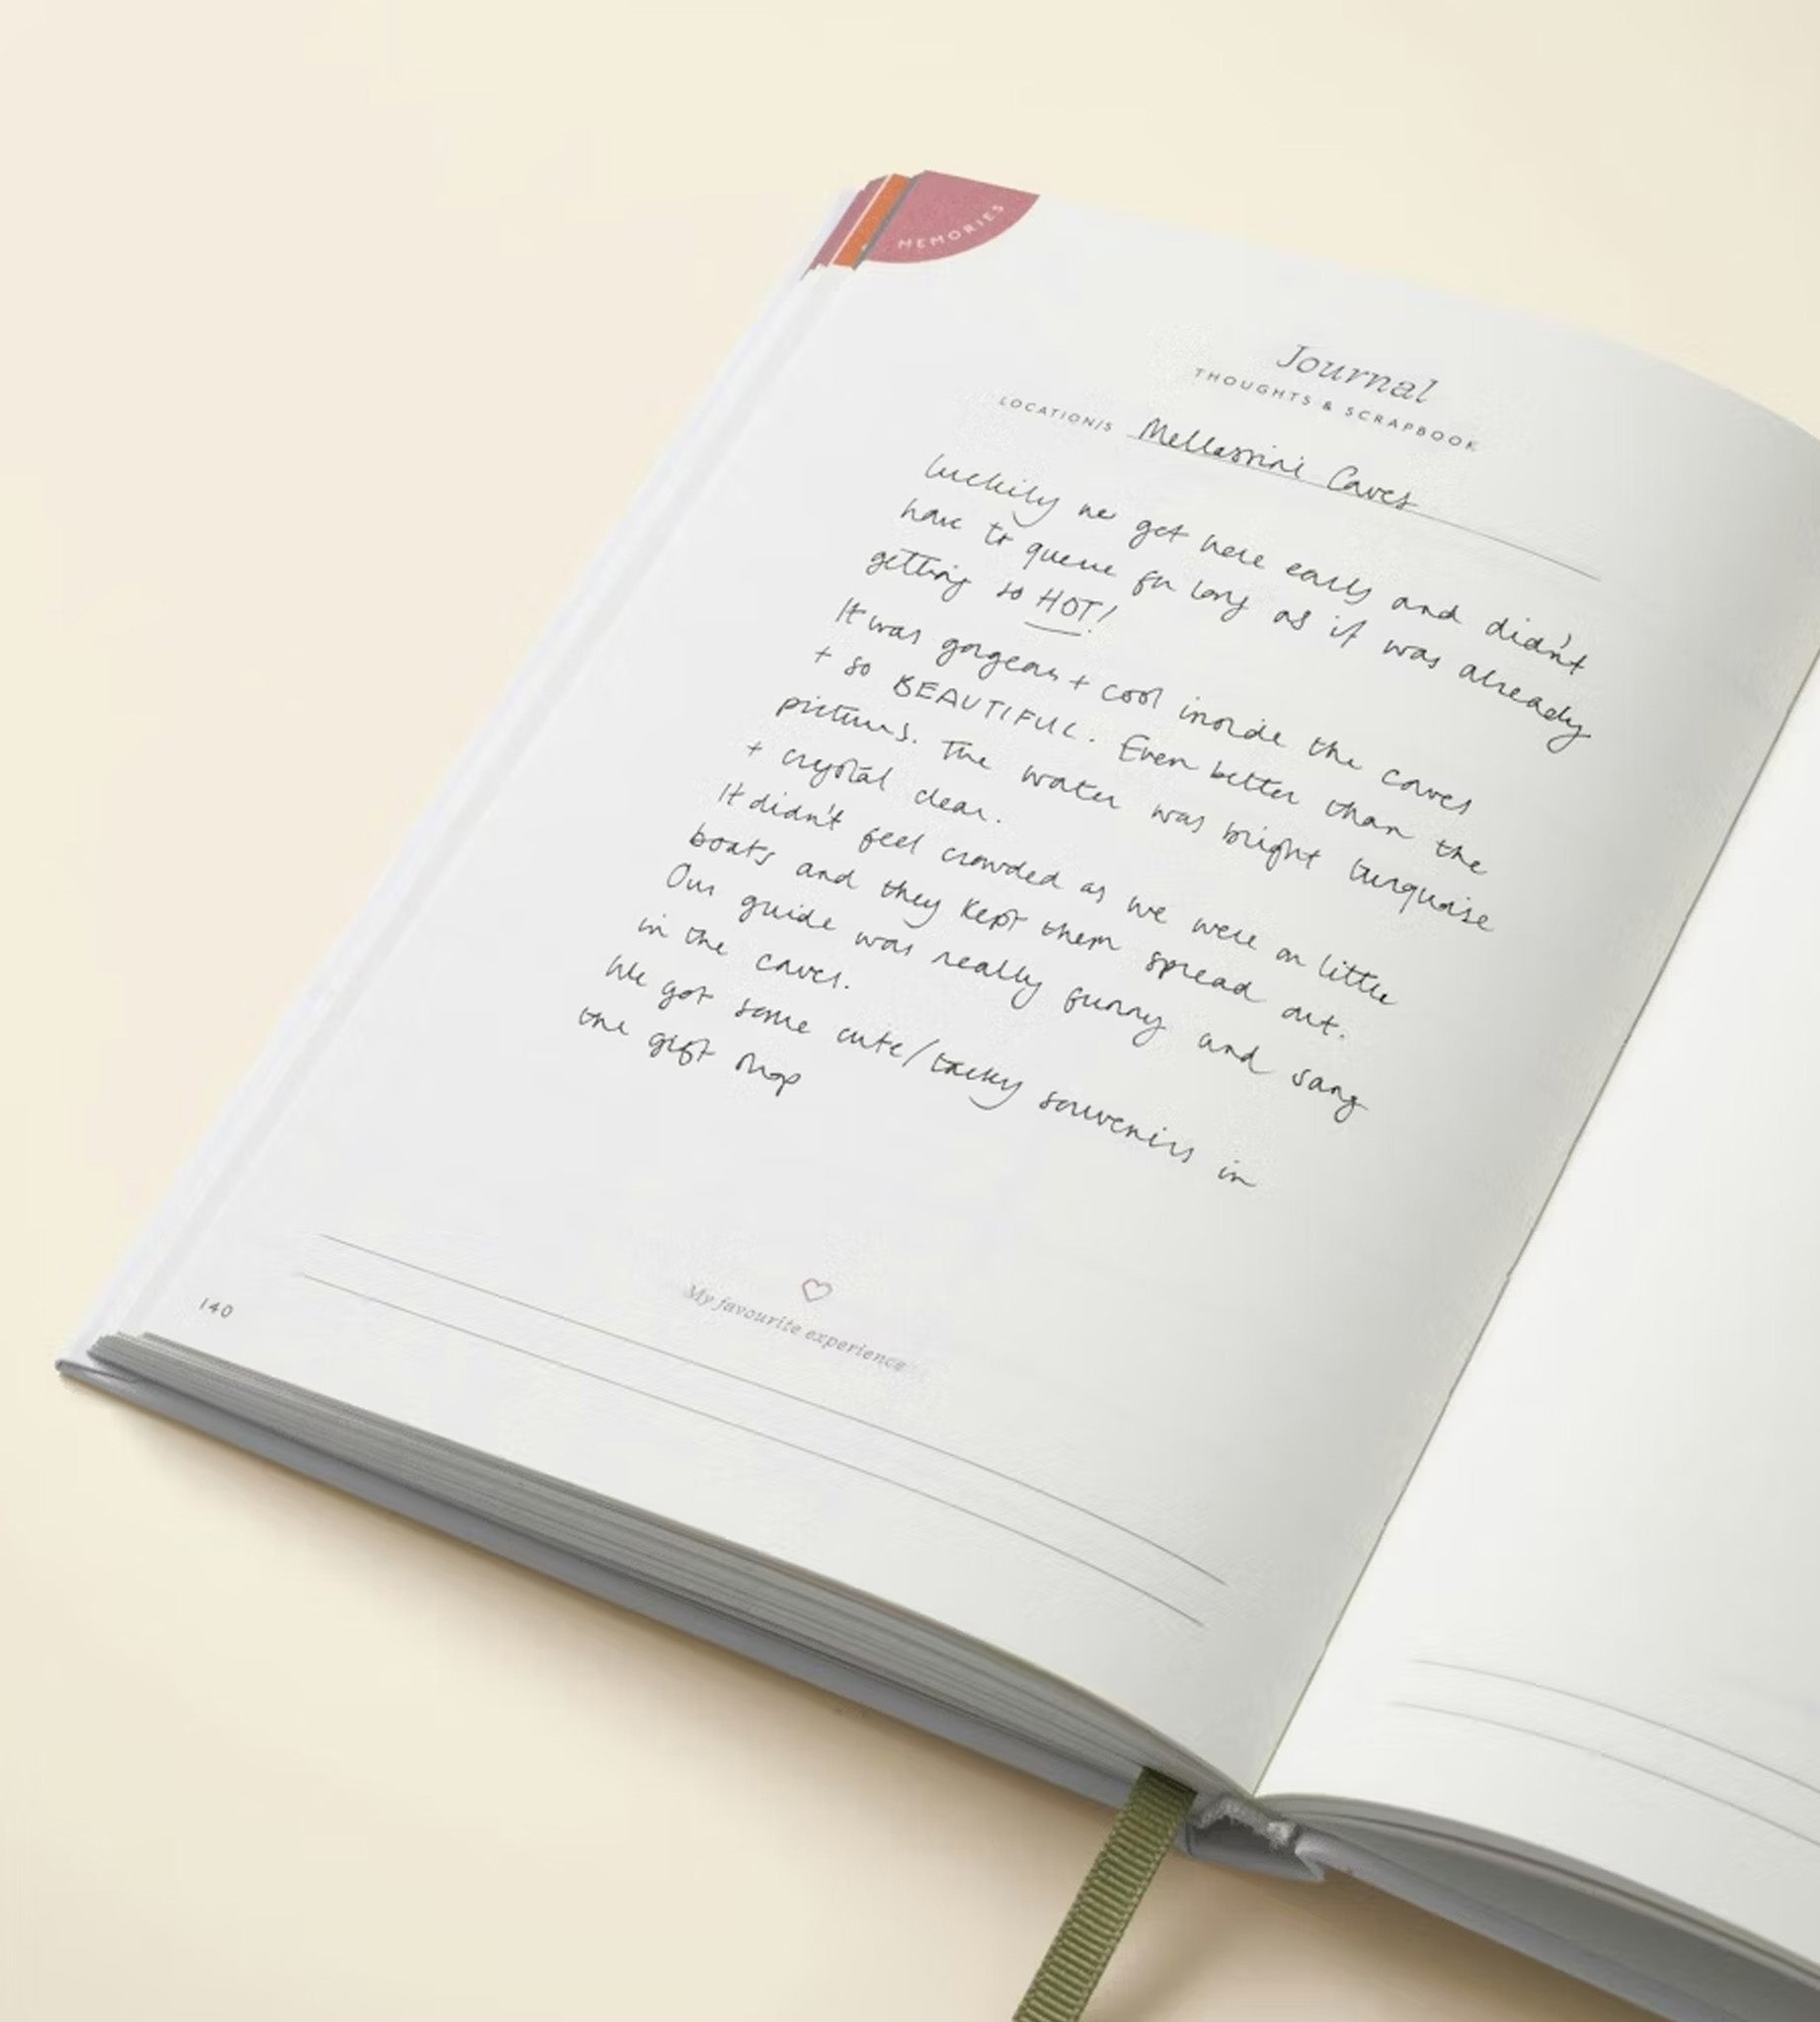 MEMORIES
Journal
THOUGHTS & SCRAPBOOK
LOCATION/S Mellassini Caves
Luckily we got here early and didn't
have to queue for long as it was already
getting so HOT!
It was gorgeous + cool inside the caves
+ so BEAUTIFUL. Even better than the
pictures. The water was bright turquoise
+ crystal clear.
It didn't feel crowded as we were on little
boats and they kept them spread out.
Our guide was really funny and sang
in the caves.
We got some cute/tacky souvenirs in
the gift shop
My favourite experience
140